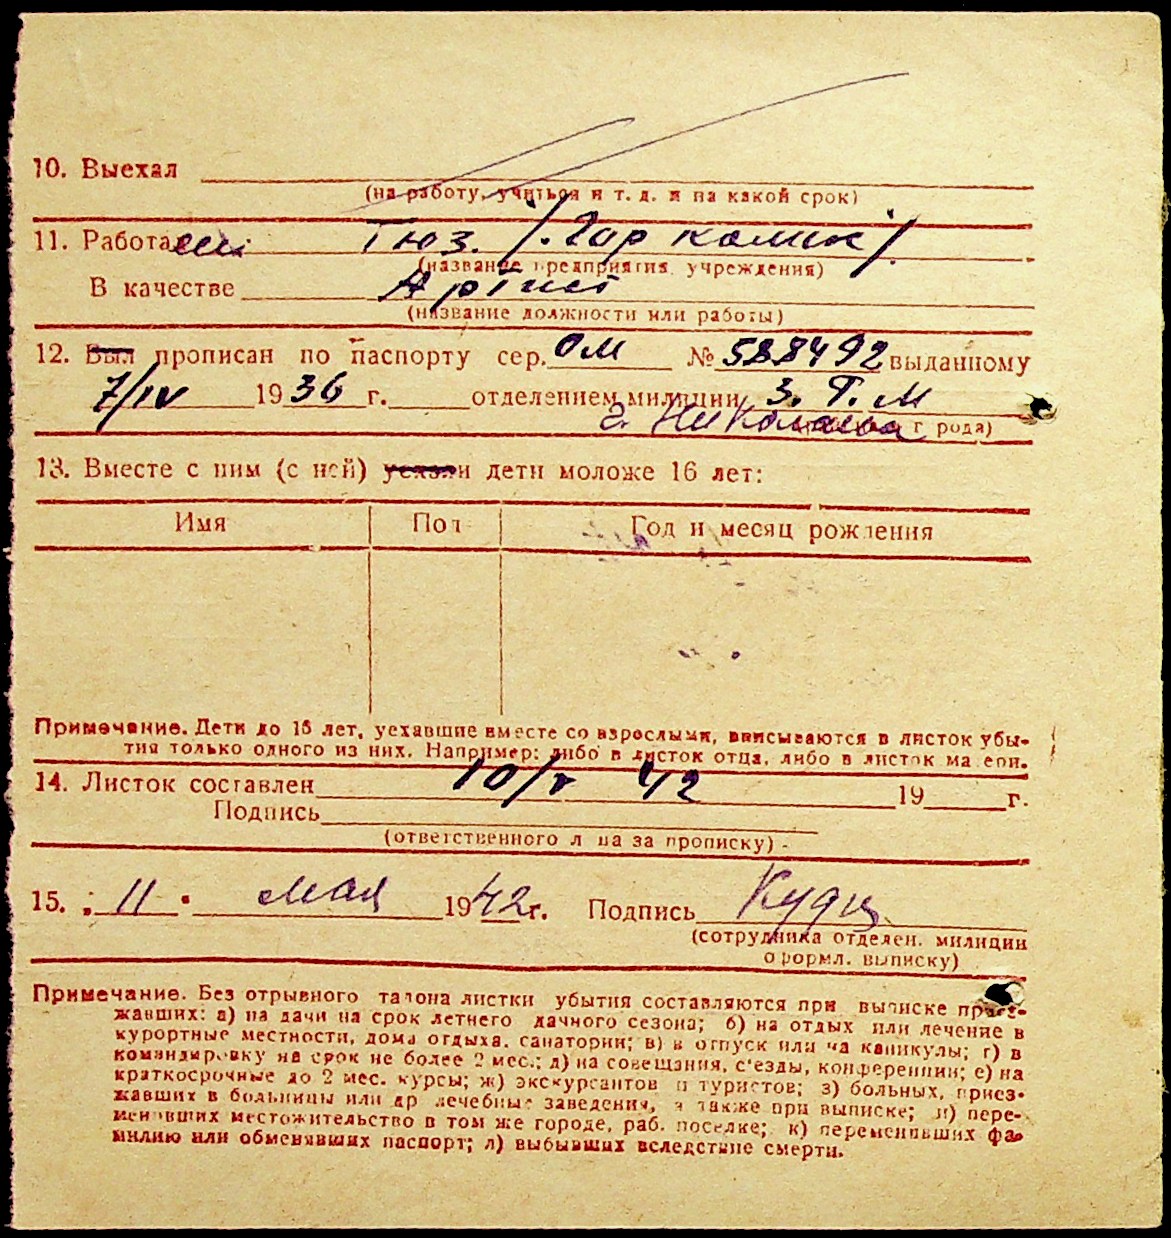 10. Выехал
(на работу, учиться и т. д. и на какой срок)
11. Работа
Тюз. /. Гор
(название предприятия, учреждения)
В качестве Артист
(название должности или работы)
12. Был прописан по паспорту сер. ОМ № 588492 выданному
7/IV 1936 г. отделением милиции 3. Г. М
г. Николаева г рода)
13. Вместе с ним (с ней) уехали дети моложе 16 лет:
Имя Пол Год и месяц рождения
Примечание. Дети до 16 лет, уехавшие вместе со взрослыми, вписываются в листок убы-
тия только одного из них. Например: либо в листок отца, либо в листок ма ери.
14. Листок составлен 10/V 42 19 г.
Подпись
(ответственного л ца за прописку)
15. 11 мая 1942 г. Подпись
(сотрудника отделен. милиции
оформл. выписку)
Примечание. Без отрывного талона листки убытия составляются при выписке приез-
жавших: а) на дачи на срок летнего дачного сезона; б) на отдых или лечение в
курортные местности, дома отдыха, санатории; в) в отпуск или на каникулы; г) в
командировку на срок не более 2 мес.; д) на совещания, с'езды, конференции; е) на
краткосрочные до 2 мес. курсы; ж) экскурсантов и туристов; з) больных, приез-
жавших в больницы или др лечебные заведения, а также при выписке; и) пере-
менивших местожительство в том же городе, раб. поселке; к) переменивших фа-
милию или обменявших паспорт; л) выбывших вследствие смерти.